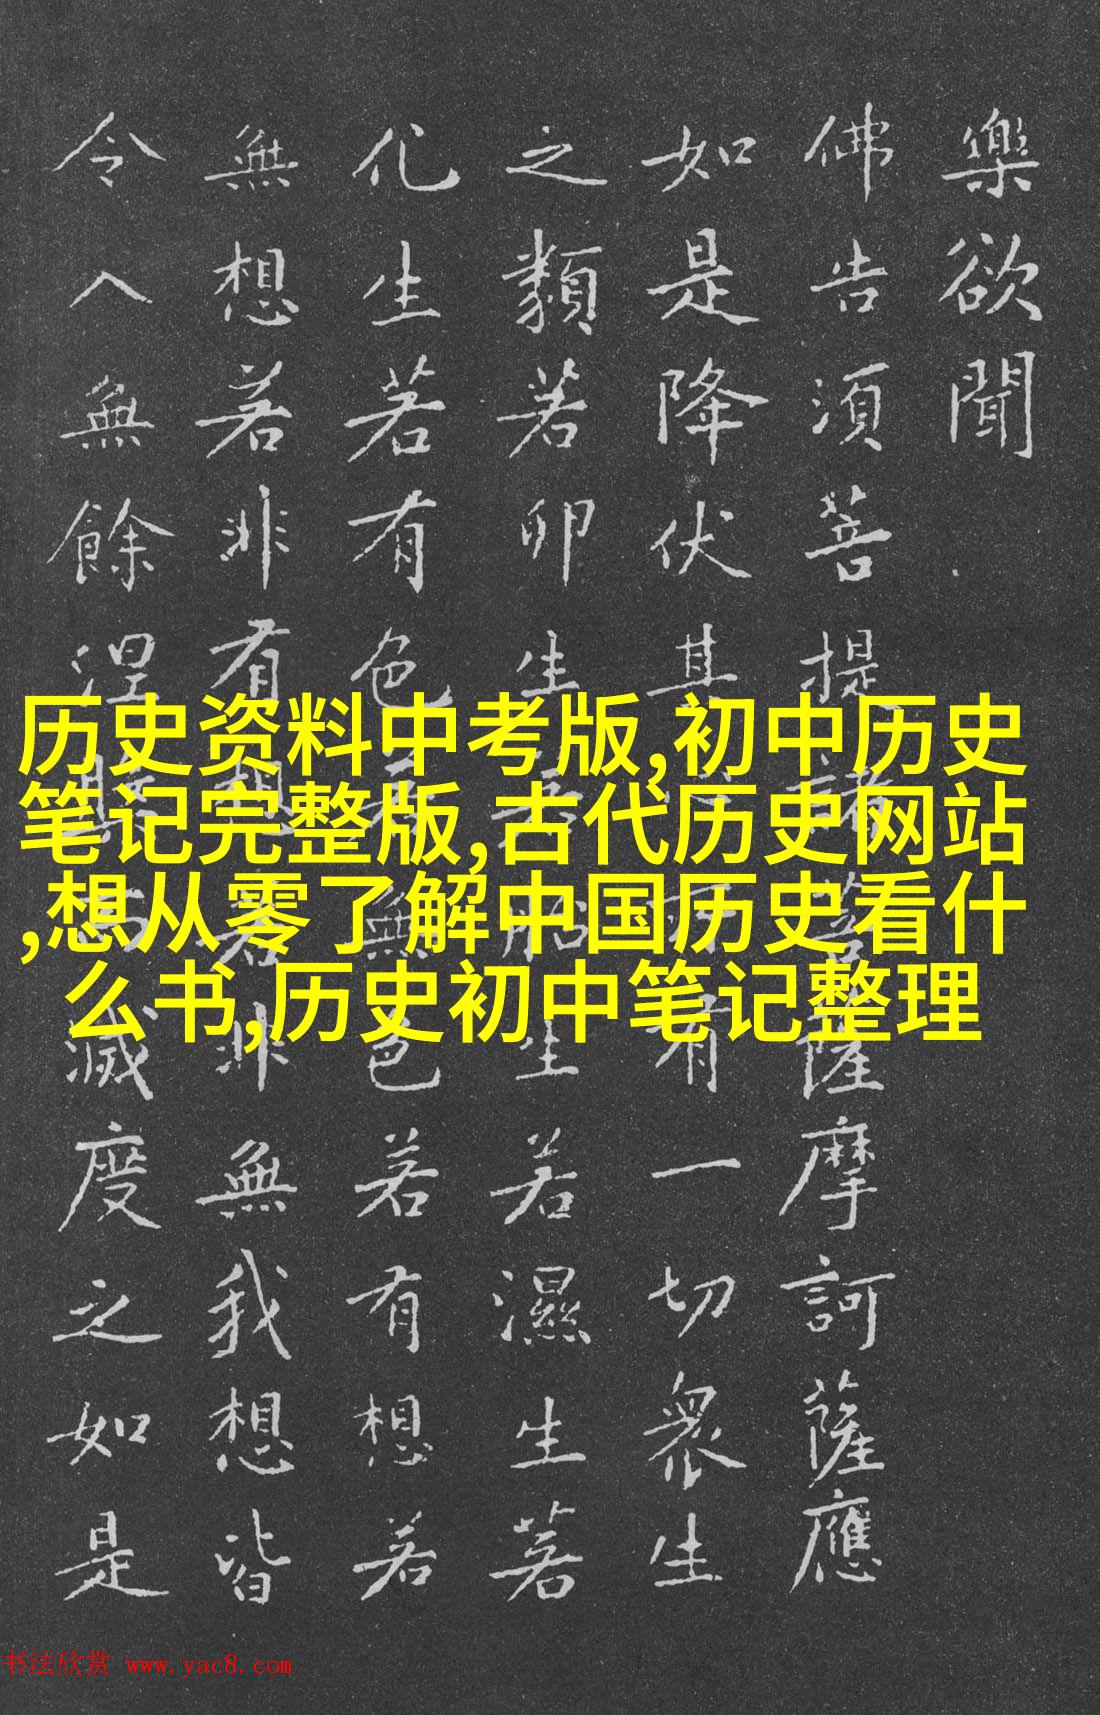 樂欲聞
佛告須菩提諸菩薩摩訶薩應
如是降伏其心所有一切眾生
之類若卵生若胎生若濕生若
化生若有色若無色若有想若
無想若非有想若非無我想皆
令入無餘涅槃而滅度之如是
历史资料中考版,初中历史
笔记完整版,古代历史网站
,想从零了解中国历史看什
么书,历史初中笔记整理
书法欣赏 www.yac8.com